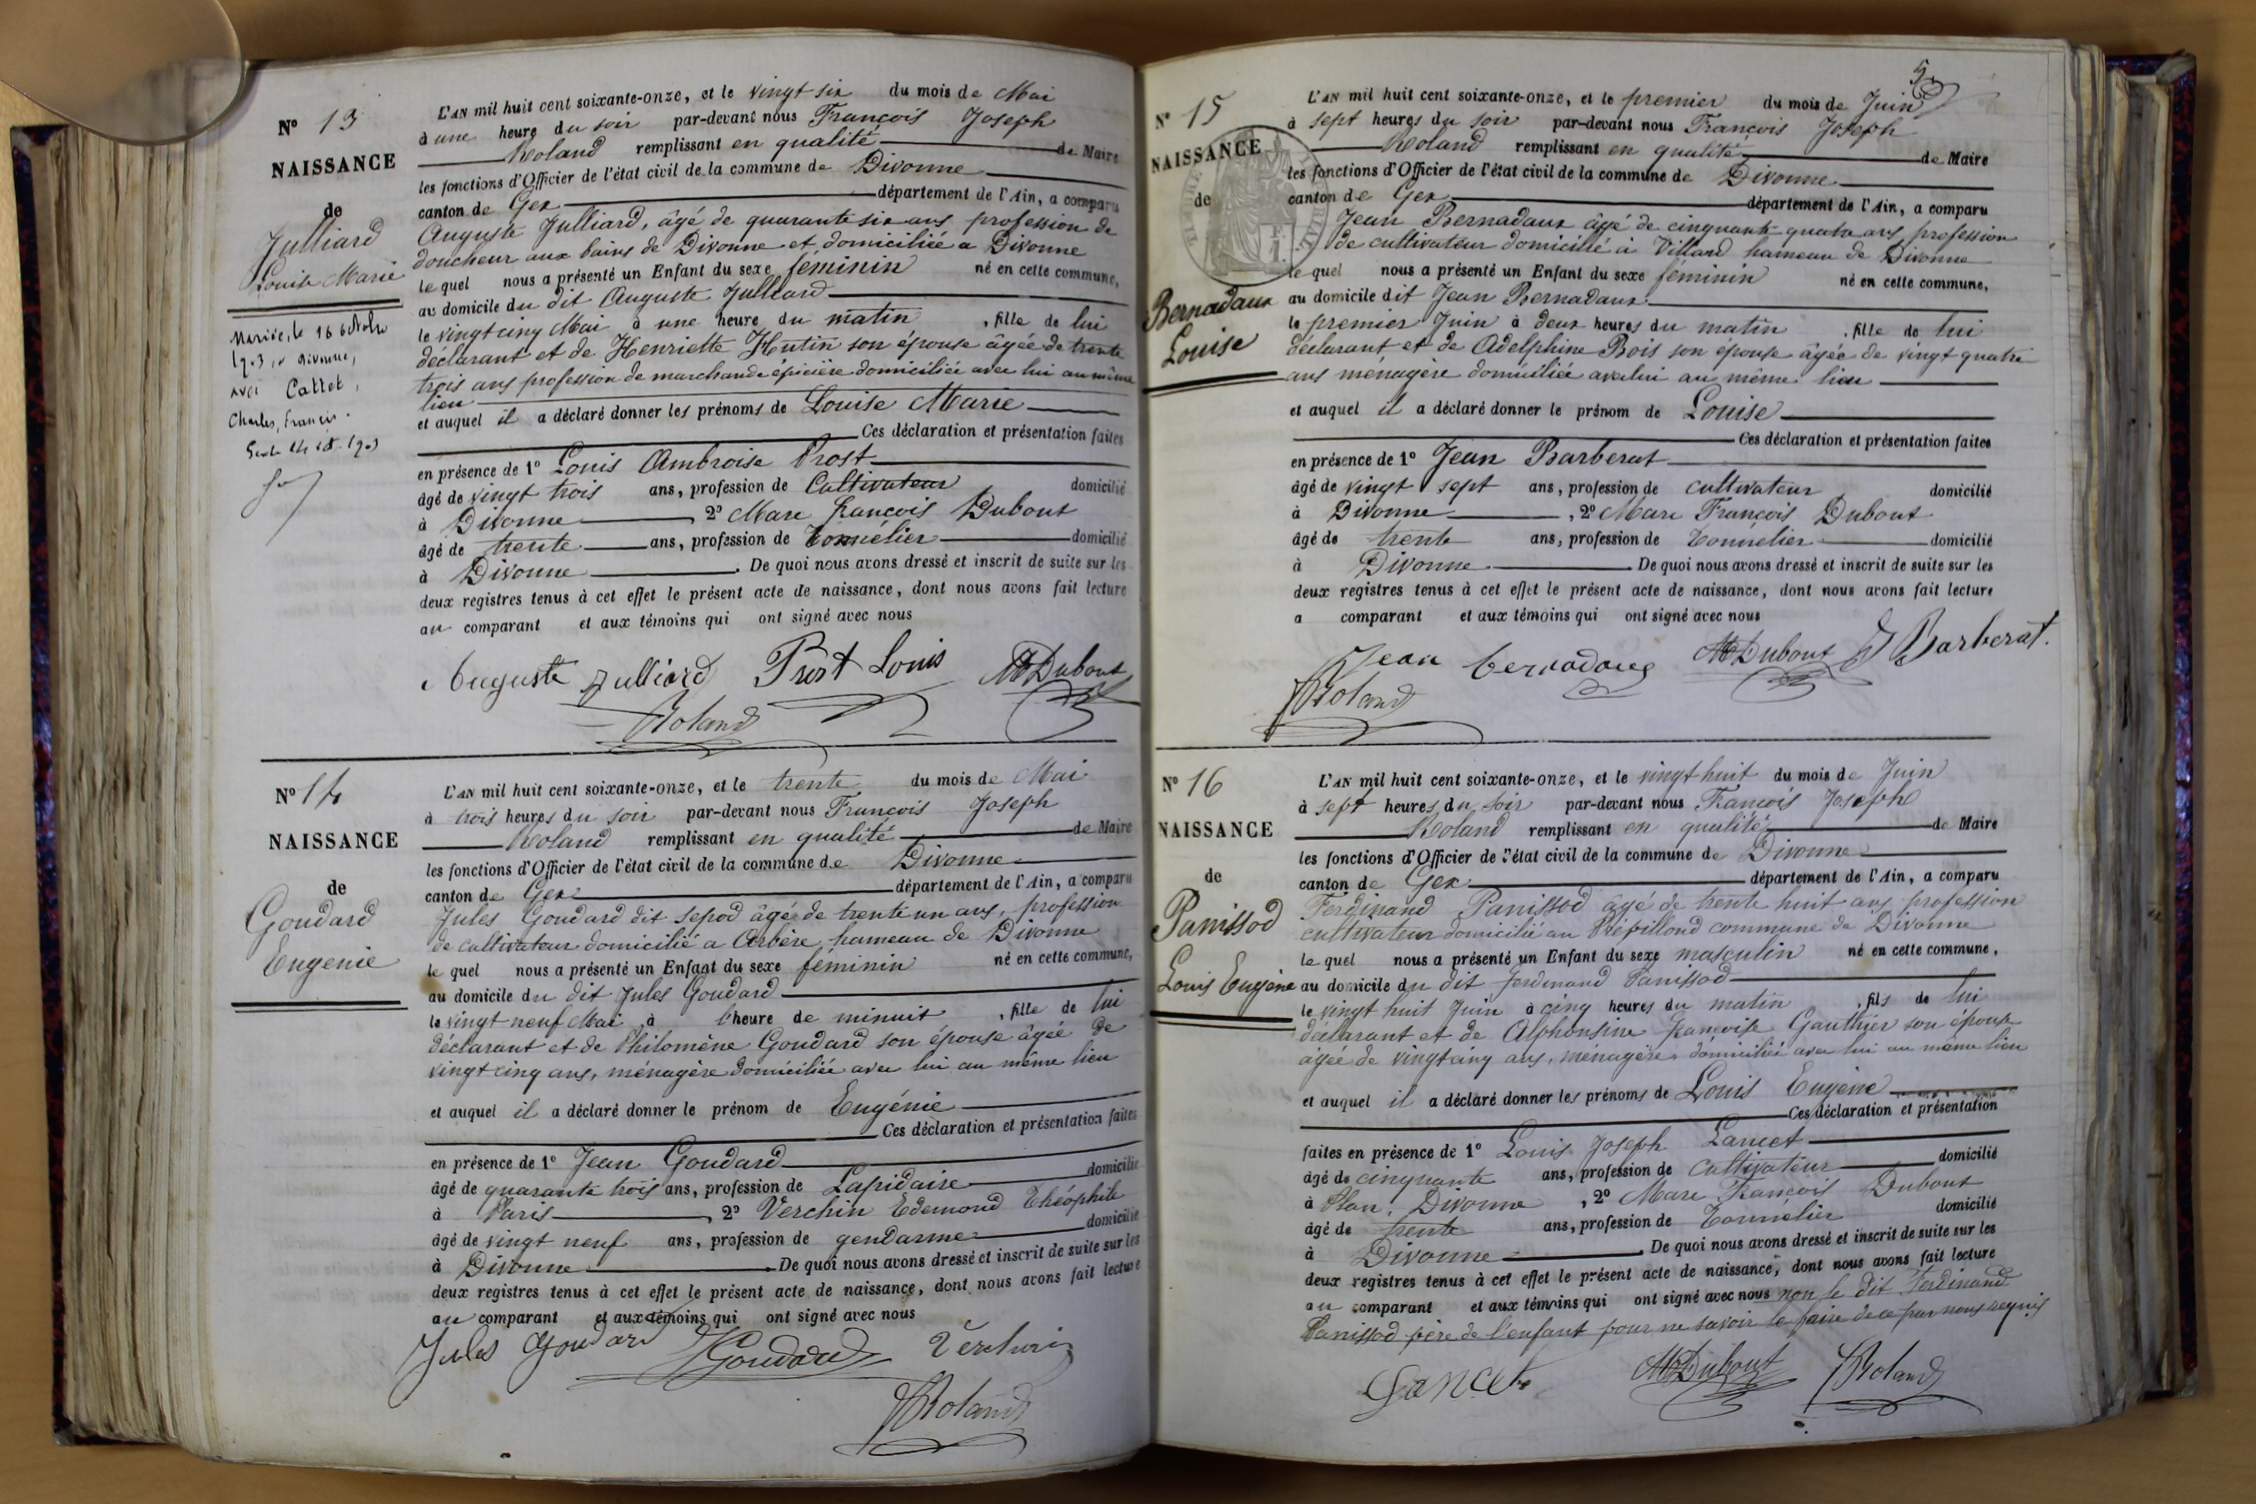 N° 13
NAISSANCE
de
Julliard
Louise Marie
Mariée, le 16 octobre
1903, à Divonne,
avec Cattet,
Charles, Francis.
L'AN mil huit cent soixante-onze, et le vingt six du mois de Mai
à une heure du soir par-devant nous François Joseph
Roland remplissant en qualité de Maire
les fonctions d'Officier de l'état civil de la commune de Divonne
canton de Gex département de l'Ain, a comparu
Auguste Julliard, âgé de quarante six ans profession de
doucheur aux bains de Divonne et domicilié a Divonne
le quel nous a présenté un Enfant du sexe féminin né en cette commune,
au domicile du dit Auguste Julliard
le vingt cinq Mai à une heure du matin, fille de lui
déclarant et de Henriette Hutin son épouse âgée de trente
trois ans profession de marchande epicière domiciliée avec lui au même
lieu
et auquel il a déclaré donner les prénoms de Louise Marie
Ces déclaration et présentation faites
en présence de 1° Louis Ambroise Prost
âgé de vingt trois ans, profession de Cultivateur domicilié
à Divonne, 2° Marc François Dubout
âgé de trente ans, profession de Tonnelier domicilié
à Divonne. De quoi nous avons dressé et inscrit de suite sur les
deux registres tenus à cet effet le présent acte de naissance, dont nous avons fait lecture
au comparant et aux témoins qui ont signé avec nous
Auguste Julliard Prost Louis MDubout
Roland
N° 14
NAISSANCE
de
Goudard
Eugenie
L'AN mil huit cent soixante-onze, et le trente du mois de Mai
à trois heures du soir par-devant nous François Joseph
Roland remplissant en qualité de Maire
les fonctions d'Officier de l'état civil de la commune de Divonne
canton de Gex département de l'Ain, a comparu
Jules Goudard dit sepod âgé de trente un ans, profession
de cultivateur domicilié a Arbère, hameau de Divonne
le quel nous a présenté un Enfant du sexe féminin né en cette commune,
au domicile du dit Jules Goudard
le vingt neuf Mai à l'heure de minuit, fille de lui
déclarant et de Philomène Goudard son épouse âgée de
vingt cinq ans, ménagère domiciliée avec lui au même lieu
et auquel il a déclaré donner le prénom de Eugénie
Ces déclaration et présentation faites
en présence de 1° Jean Goudard
âgé de quarante trois ans, profession de Lapidaire domicilié
à Paris, 2° Verchin Edemond Théophile
âgé de vingt neuf ans, profession de gendarme domicilié
à Divonne. De quoi nous avons dressé et inscrit de suite sur les
deux registres tenus à cet effet le présent acte de naissance, dont nous avons fait lecture
au comparant et aux témoins qui ont signé avec nous
Jules Goudard JGoudard Verchin
Roland
5
N° 15
NAISSANCE
de
Bernadaux
Louise
L'AN mil huit cent soixante-onze, et le premier du mois de Juin
à sept heures du soir par-devant nous François Joseph
Roland remplissant en qualité de Maire
les fonctions d'Officier de l'état civil de la commune de Divonne
canton de Gex département de l'Ain, a comparu
Jean Bernadaux âgé de cinquante-quatre ans, profession
de cultivateur domicilié à Villard hameau de Divonne
le quel nous a présenté un Enfant du sexe féminin né en cette commune,
au domicile dit Jean Bernadaux
le premier Juin à deux heures du matin, fille de lui
déclarant et de Adelphine Bois son épouse âgée de vingt quatre
ans ménagère domiciliée avec lui au même lieu
et auquel il a déclaré donner le prénom de Louise
Ces déclaration et présentation faites
en présence de 1° Jean Barberat
âgé de vingt sept ans, profession de cultivateur domicilié
à Divonne, 2° Marc François Dubout
âgé de trente ans, profession de Tonnelier domicilié
à Divonne. De quoi nous avons dressé et inscrit de suite sur les
deux registres tenus à cet effet le présent acte de naissance, dont nous avons fait lecture
a comparant et aux témoins qui ont signé avec nous
Jean bernadaux MDubout J Barberat.
Roland
N° 16
NAISSANCE
de
Panissod
Louis Eugène
L'AN mil huit cent soixante-onze, et le vingt huit du mois de Juin
à sept heures du soir par-devant nous François Joseph
Roland remplissant en qualité de Maire
les fonctions d'Officier de l'état civil de la commune de Divonne
canton de Gex département de l'Ain, a comparu
Ferdinand Panissod âgé de trente huit ans profession
cultivateur domicilié au commune de Divonne
le quel nous a présenté un Enfant du sexe masculin né en cette commune,
au domicile du dit ferdinand Panissod
le vingt huit Juin à cinq heures du matin, fils de lui
déclarant et de Alphonsine françoise Gauthier son épouse
agée de vingt cinq ans, ménagère, domiciliée avec lui au même lieu
et auquel il a déclaré donner les prénoms de Louis Eugène
Ces déclaration et présentation
faites en présence de 1° Louis Joseph Lancet
âgé de cinquante ans, profession de Cultivateur domicilié
à Plan, Divonne, 2° Marc François Dubout
âgé de trente ans, profession de Tonnelier domicilié
à Divonne. De quoi nous avons dressé et inscrit de suite sur les
deux registres tenus à cet effet le présent acte de naissance, dont nous avons fait lecture
au comparant et aux témoins qui ont signé avec nous non le dit Ferdinand
Panissod père de l'enfant pour ne savoir le faire de ce par nous requis
Lancet MDubout Roland